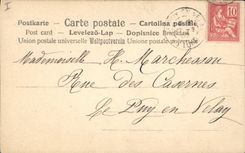 I
Postkarte - Carte postale - Cartolina postale
Post card - Levelező-Lap - Dopisnice
Union postale universelle Weltpostverein Unione postale universale
10
Mademoiselle H. Marchesson
Rue des Casernes
Le Puy en Velay